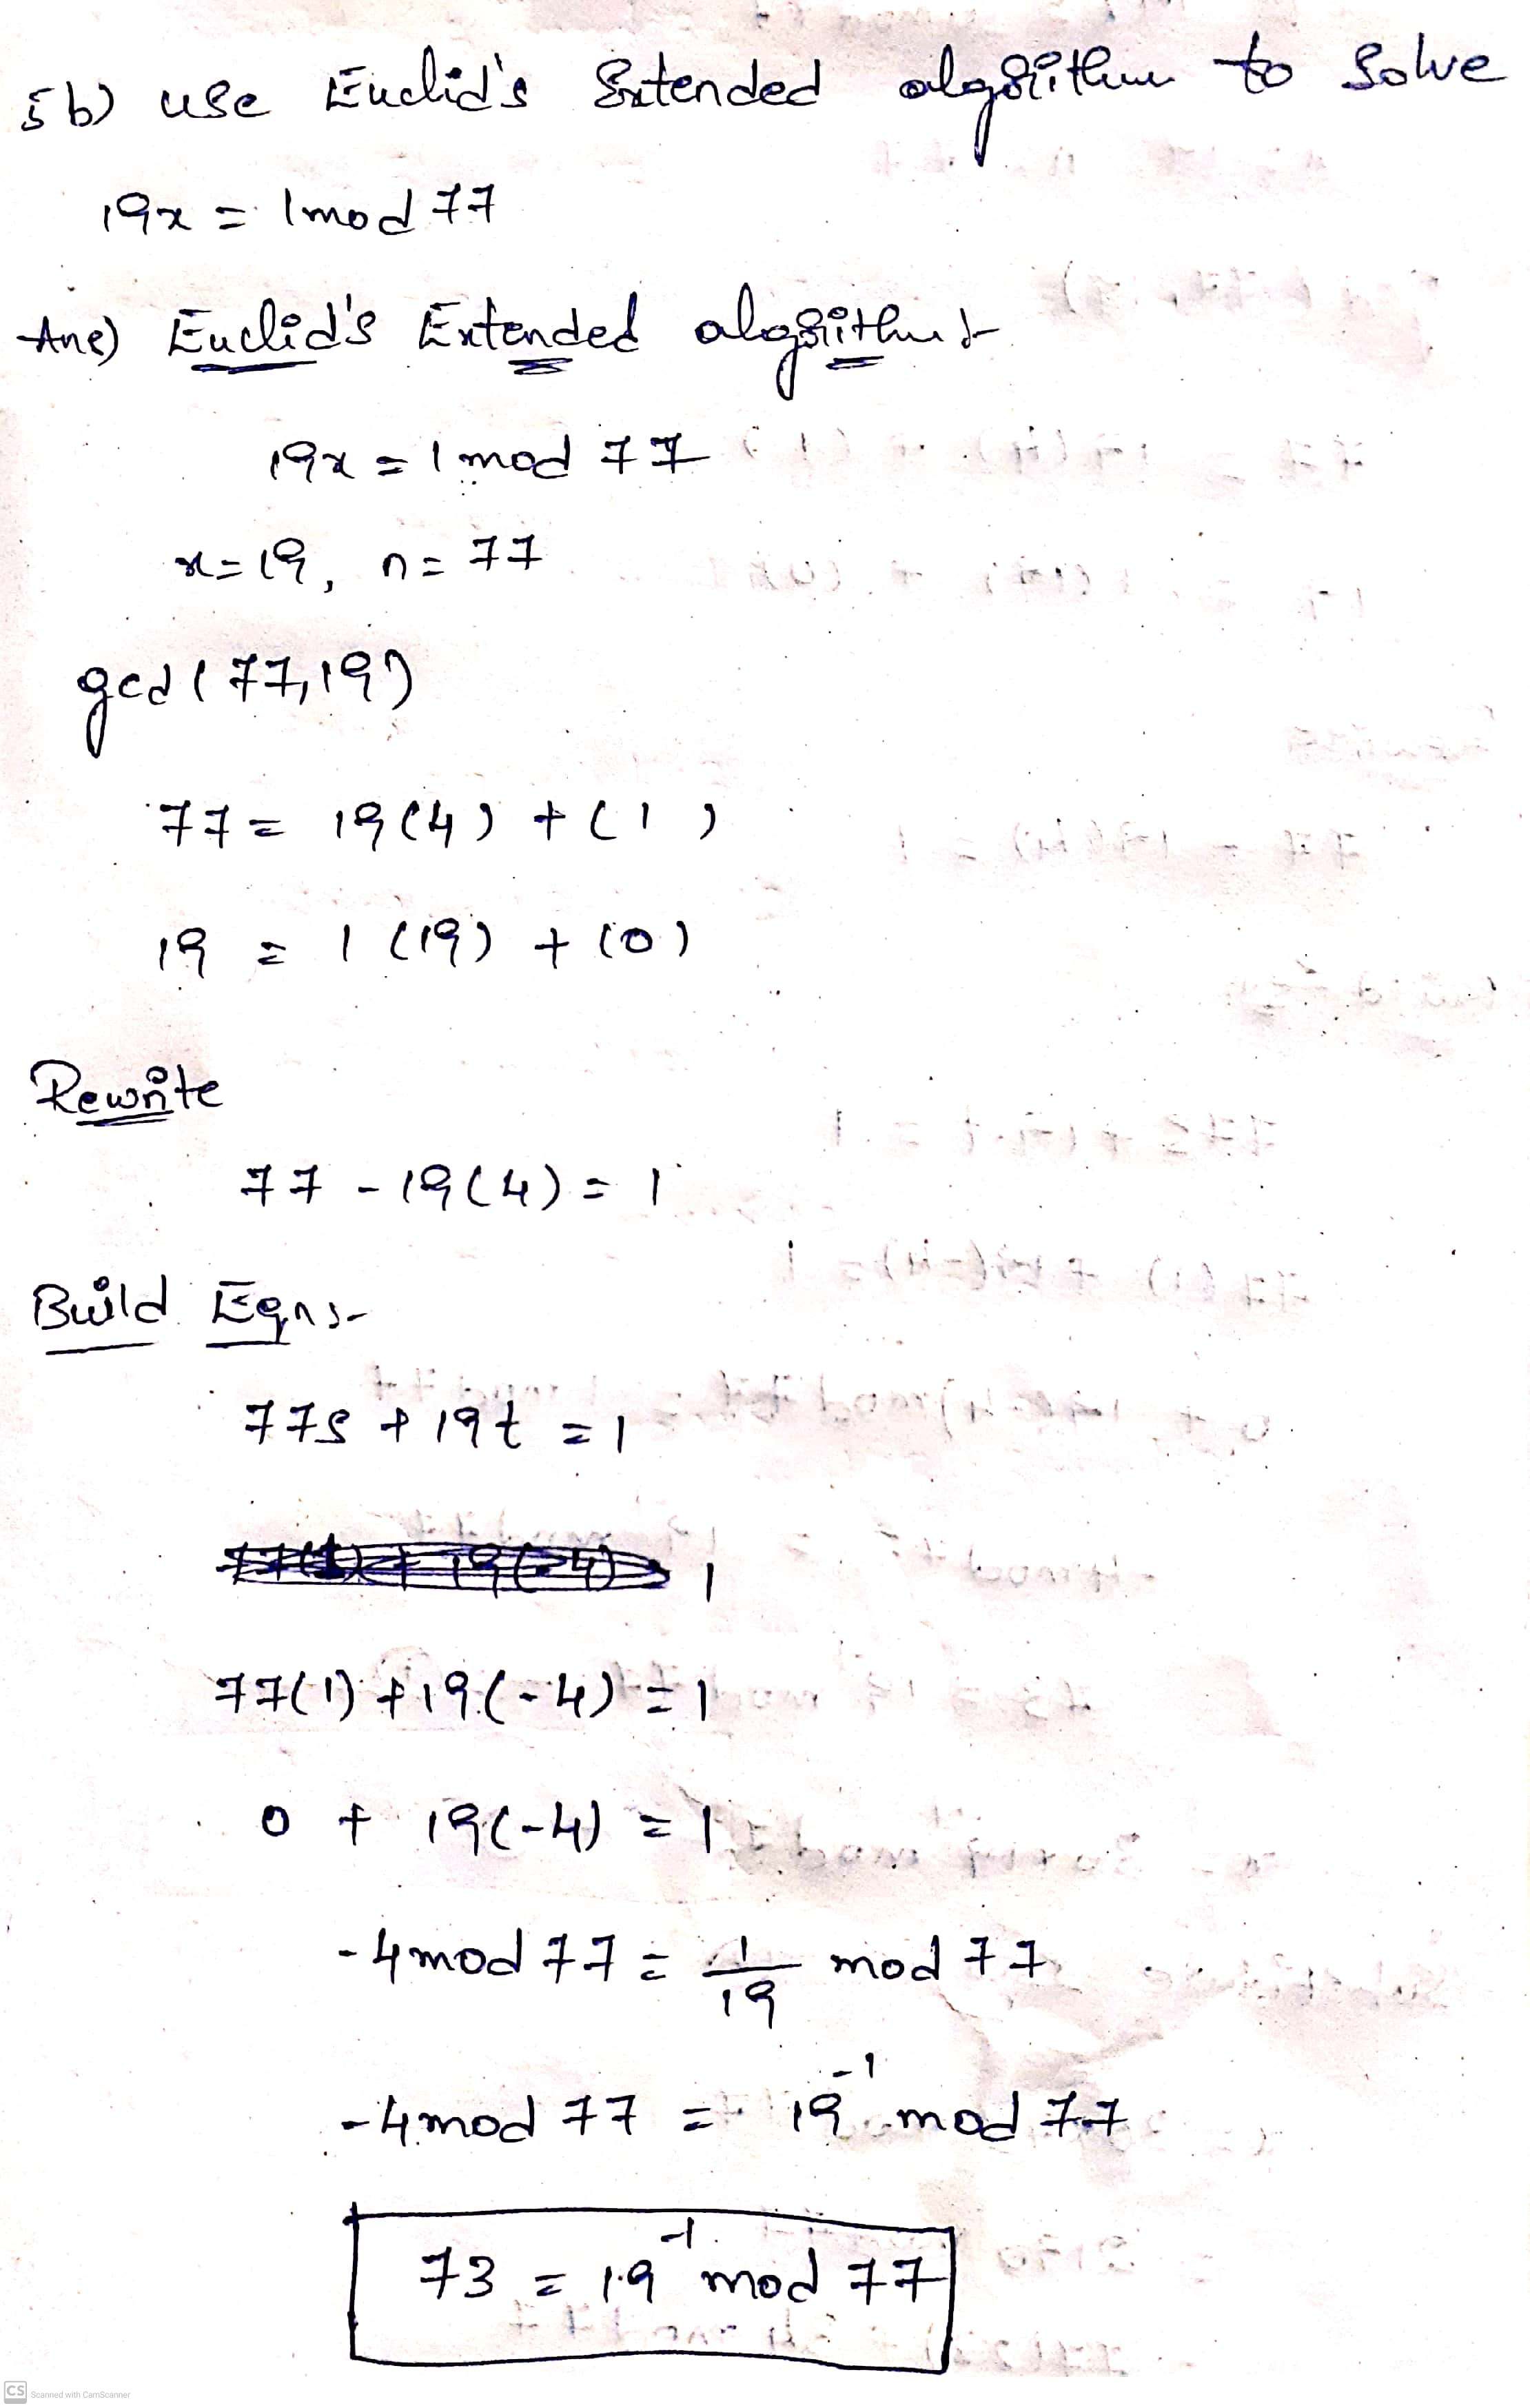 5b) use Euclid's Extended algorithm to Solve
19x = 1mod 77
Ans) Euclid's Extended algorithm:-
19x = 1 mod 77
x=19, n=77
gcd(77,19)
77 = 19(4) + (1)
19 = 1 (19) + (0)
Rewrite
77 - 19(4) = 1
Build Eqn:-
77s + 19t = 1
1
77(1) + 19(-4) = 1
0 + 19(-4) = 1
-4mod 77 = 1/19 mod 77
-4mod 77 = 19⁻¹ mod 77
73 = 19⁻¹ mod 77
CS Scanned with CamScanner